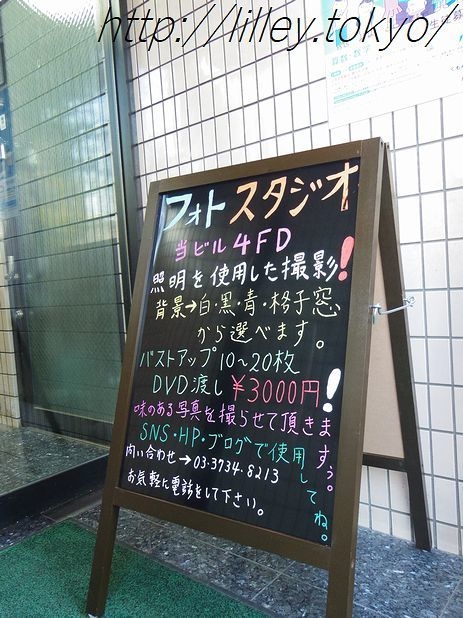 http://lilley.tokyo/
フォトスタジオ
当ビル4FD
照明を使用した撮影!
背景→白・黒・青・格子窓
から選べます。
バストアップ10~20枚
DVD渡し¥3000円!
味のある写真を撮らせて頂きますぅ。
SNS・HP・ブログで使用してね。
問い合わせ→03-3734-8213
お気軽に電話をして下さい。